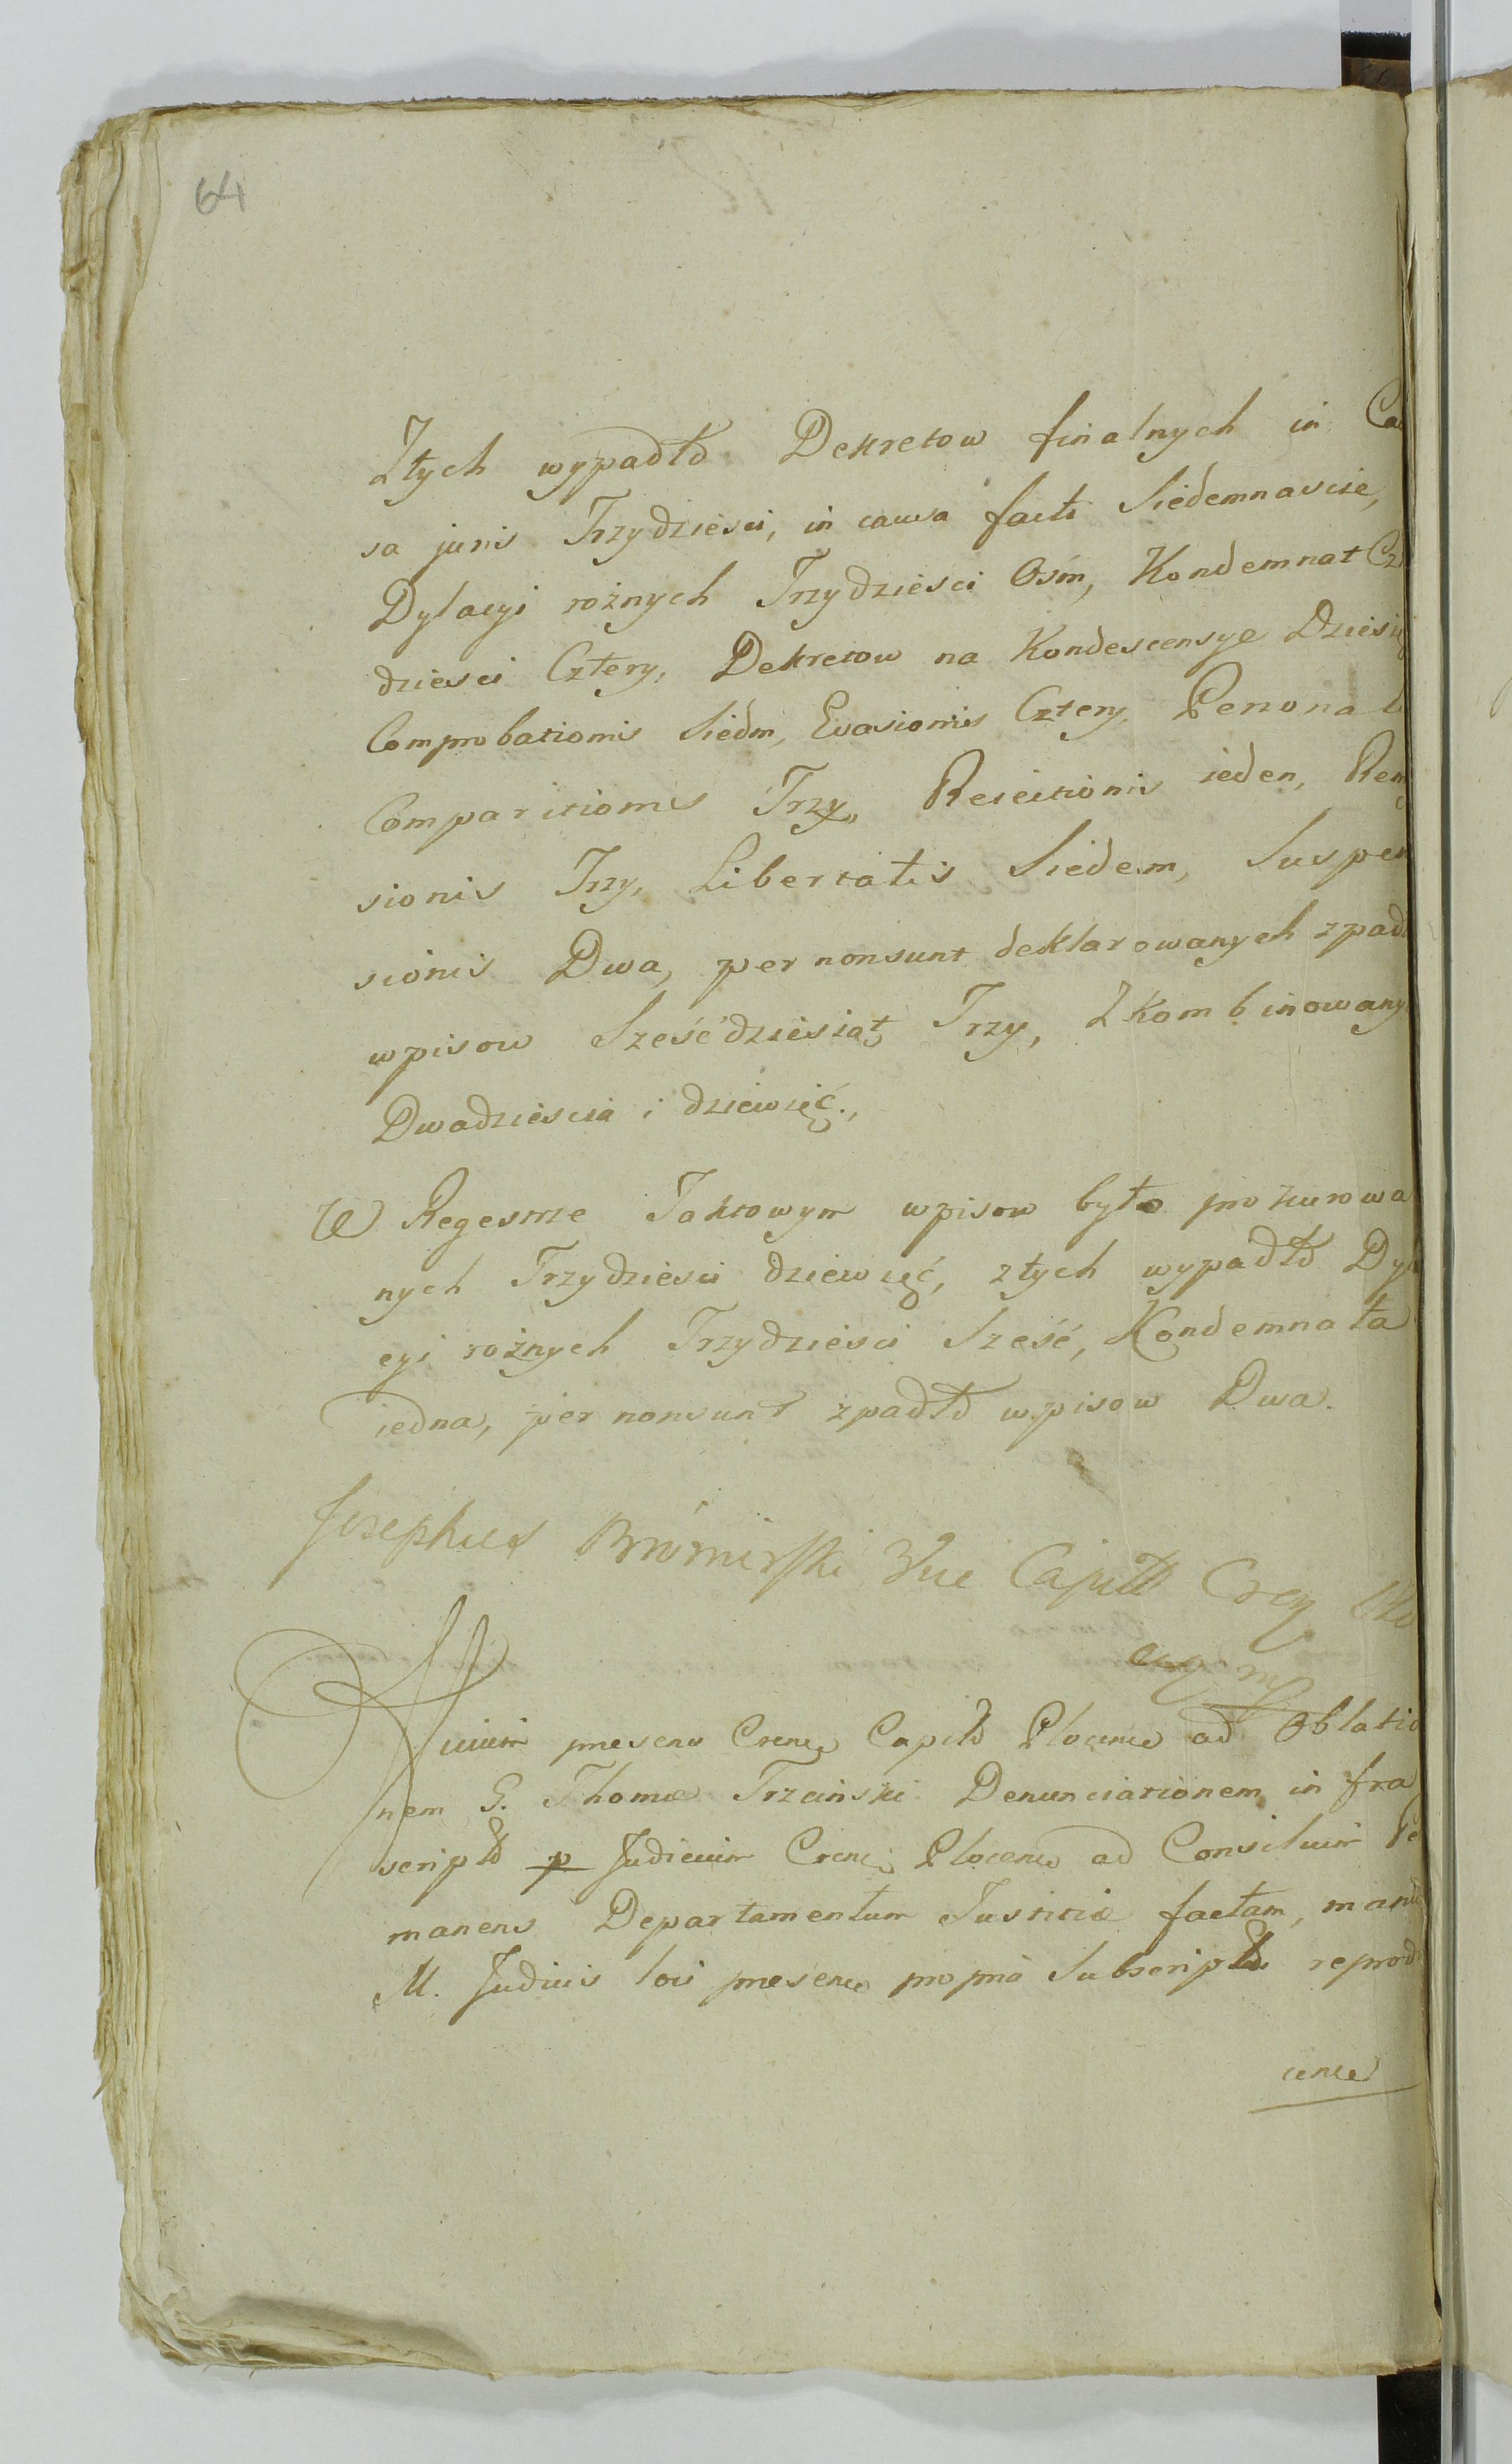 64
Ztych wypadło Dekretow finalnych in Ca
sa juris Trzydziesci, in causa facti Siedemnascie,
Dylacyi rożnych Trzydziesci Ośm, Kondemnat Cz
dziesci Cztery, Dekretow na Kondescensye Dziesię
Comprobationis Siedm, Evasionis Cztery, Personal
Comparitionis Trzy, Reiectionis ieden, Rem
sionis Trzy, Libertatis Siedem, Suspen
sionis Dwa, per nonsunt deklarowanych spadł
wpisow Sześćdziesiąt Trzy, Zkombinowany
Dwadziescia i dziewięć.,
W Regestrze Taktowym wpisow było prokurowa
nych Trzydziesci dziewięć, ztych wypadło Dyl
cyi rożnych Trzydziesci Sześć, Kondemnata
iedna, per nonsunt zpadło wpisow Dwa.
Josephus Bromirski Vice Capitt
mp
presens Crense Capitło Plocense ad Oblatio
nem G. Thomæ Trzcinski Denunciationem infra
scriptło p Judicium Crense Plocense ad Consilium Pe
manens Departamentum Justitiæ factam, manu
M. Judicis loci presens propria Subscriptło reprod
cence